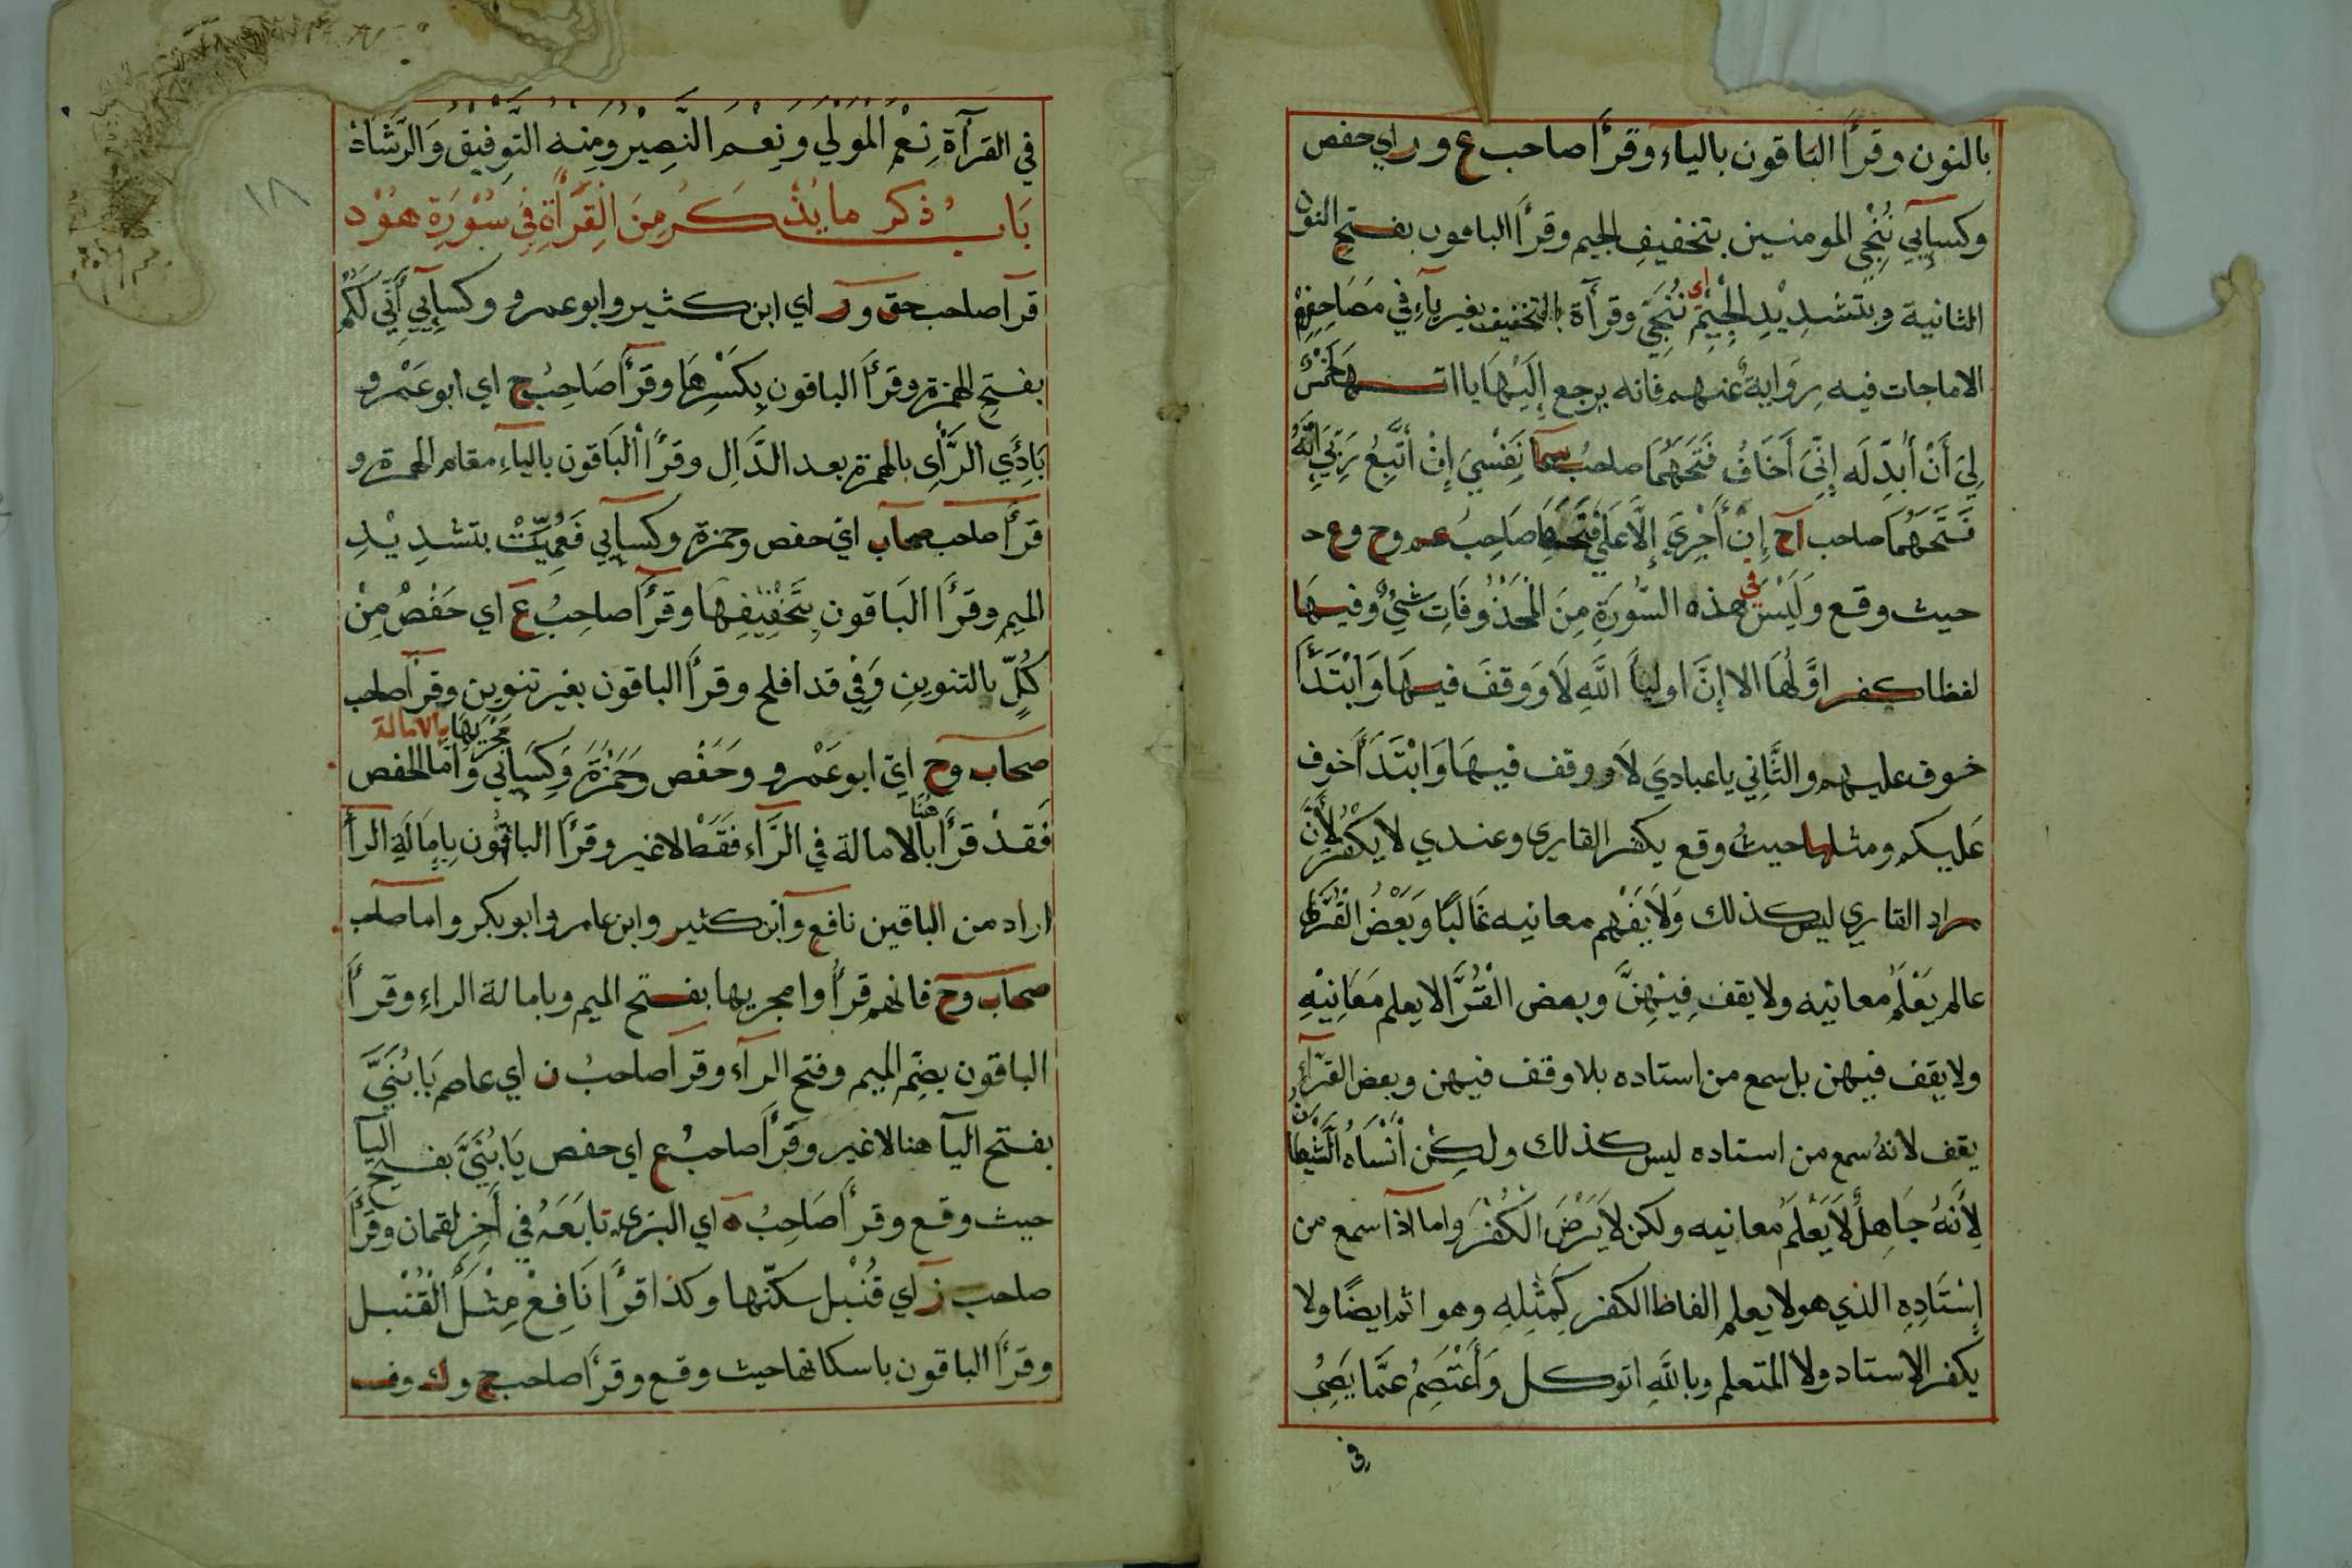 بالنون وقرأ الباقون بالياء وقرأ صاحب ع ور اي حفص
وكسايي نُنْجِي المومنين بتخفيف الجيم وقرأ الباقون بفتح النون
الثانية وبتشديد الجيم اي نُنَجِّي وقرآة بالتخفيف بغير ياء في مصاحفهم
الاماجات فيه رواية عنهم فانه يرجع إليها ياآتها خمس
لِيَ أَنْ أُبَدِّلَه إِنِّيَ أَخَافُ فَتَحَهُمَا صاحبُ سما نَفْسِيَ إِنْ أَتَّبِعُ رَبِّيَ إِنَّهُ
فَتَحَهُمَا صاحب آح إِنْ أَجْرِيَ إِلَّا عَلَى فَتَحَهَا صَاحِبُ عم وح وع
حيث وقع وَلَيْسَ في هذه السُّورَةِ مِنَ الْمَحْذُوفَاتِ شيءٌ وفيها
لفظا كفر اوَّلُهَا الا إِنَّ اوليآ اللَّهِ لَا وَوقفَ فيهَا وَابْتَدَأَ
خوف عليهم والثَّانِي يا عباديَ لَا ووقف فيهَا وَابْتَدَأَ خوف
عَليكم ومثلها حيثُ وقع يكفر القاري وعندي لا يكْفُرُ لِأَنَّ
مراد القاري ليس كذلك وَلَا يَفْهم معانيه غَالبًا وَبَعْضُ الْقُرَّا
عالم يَعْلَمُ معانيه ولا يقف فِيْهِنَّ وبعض الْقُرَّا لا يعلم مَعَانِيْهِ
ولا يقف فيهن بل سمع من استاده بلا وقف فيهن وبعض القرّآء
يقف لانهُ سمع من استاده ليس كذلك ولكِن أَنْسَاهُ الشَّيْطَان
لِأَنَّهُ جَاهِلٌ لَا يَعْلَمُ معانيه ولكن لَا يَرْضَ الْكُفْرَ واما اذا سمع من
اِسْتَادِهِ الذي هو لا يعلم الفاظ الكفر كَمِثْلِهِ وهو اثم ايضًا ولا
يكفر الاستاد ولا المتعلم وباللّهِ اتوكل وَأَعْتَصِمُ عَمَّا يَصِمُ
في
١٨
في القرآة نِعْمَ الْمَوْلَي وَنِعْمَ النَّصِيْرُ وَمِنهُ التَّوفِيْقُ وَالرَّشَاد
بَابُ ذكر ما يُذْكَرُ مِنَ الْقِرَأَةِ فِي سُوْرَةِ هُوْد
قرآ صاحب حق ور اي ابن كثير وابو عمرو وكسايي أَنِّي لَكُمْ
بفتح الهمزة وقرأ الباقون بِكَسْرِهَا وقرأ صَاحِبُ ح اي ابو عَمْرو
بَادِئَ الرَّأْي بالهمزة بعد الدَّالِ وقرأ الْبَاقون بالياءِ مقام الهمزة و
قرأ صاحب صحاب اي حفص وحمزة وكسايي فَعُمِّيَتْ بتشديْدِ
الميم وقرأ الباقون بِتَخْفِيْفِهَا وقرأ صاحِبُ ع اي حَفْصُ مِنْ
كُلٍّ بالتنوين وَفِي قد افلح وقرأ الباقون بغير تنوين وقرأ صاحب
صحاب وح اي ابو عَمْرو وَحَفْص وَحَمْزَةَ وَكِسَايِي مَجْرِيهَا بالامالة وَامَّا الحفص
فَقَدْ قرأ هُنَا بالامالة في الرَّاء فَقَطْ لا غير وقرأ الباقُون بِاِمَالَةِ الرأ
اراد من الباقين نافع وابن كثير وابن عامر وابو بكر واما صاحب
صحاب وح فانهم قرأُوا مجريها بفتح الميم وبامالة الراءِ وقرأَ
الباقون بضِّم الميم وفتح الرآء وقرآ صاحبُ ن اي عاصم يَا بُنَيَّ
بفتح اليآ هنا لا غير وقرأ صاحبُ ع اي حفص يَا بُنَيَّ بفتح اليآ
حيث وقع وقرأَ صَاحِبُ ه اي البزي تَابَعَهُ في أَخِرِ لقمان وقرأَ
صاحب ز اي قُنْبل سكنّها وكذا قرأ نَافِعْ مِثْلَ الْقُنْبل
وقرأ الباقون باسكانها حيث وقع وقرأ صاحب ح وك وف